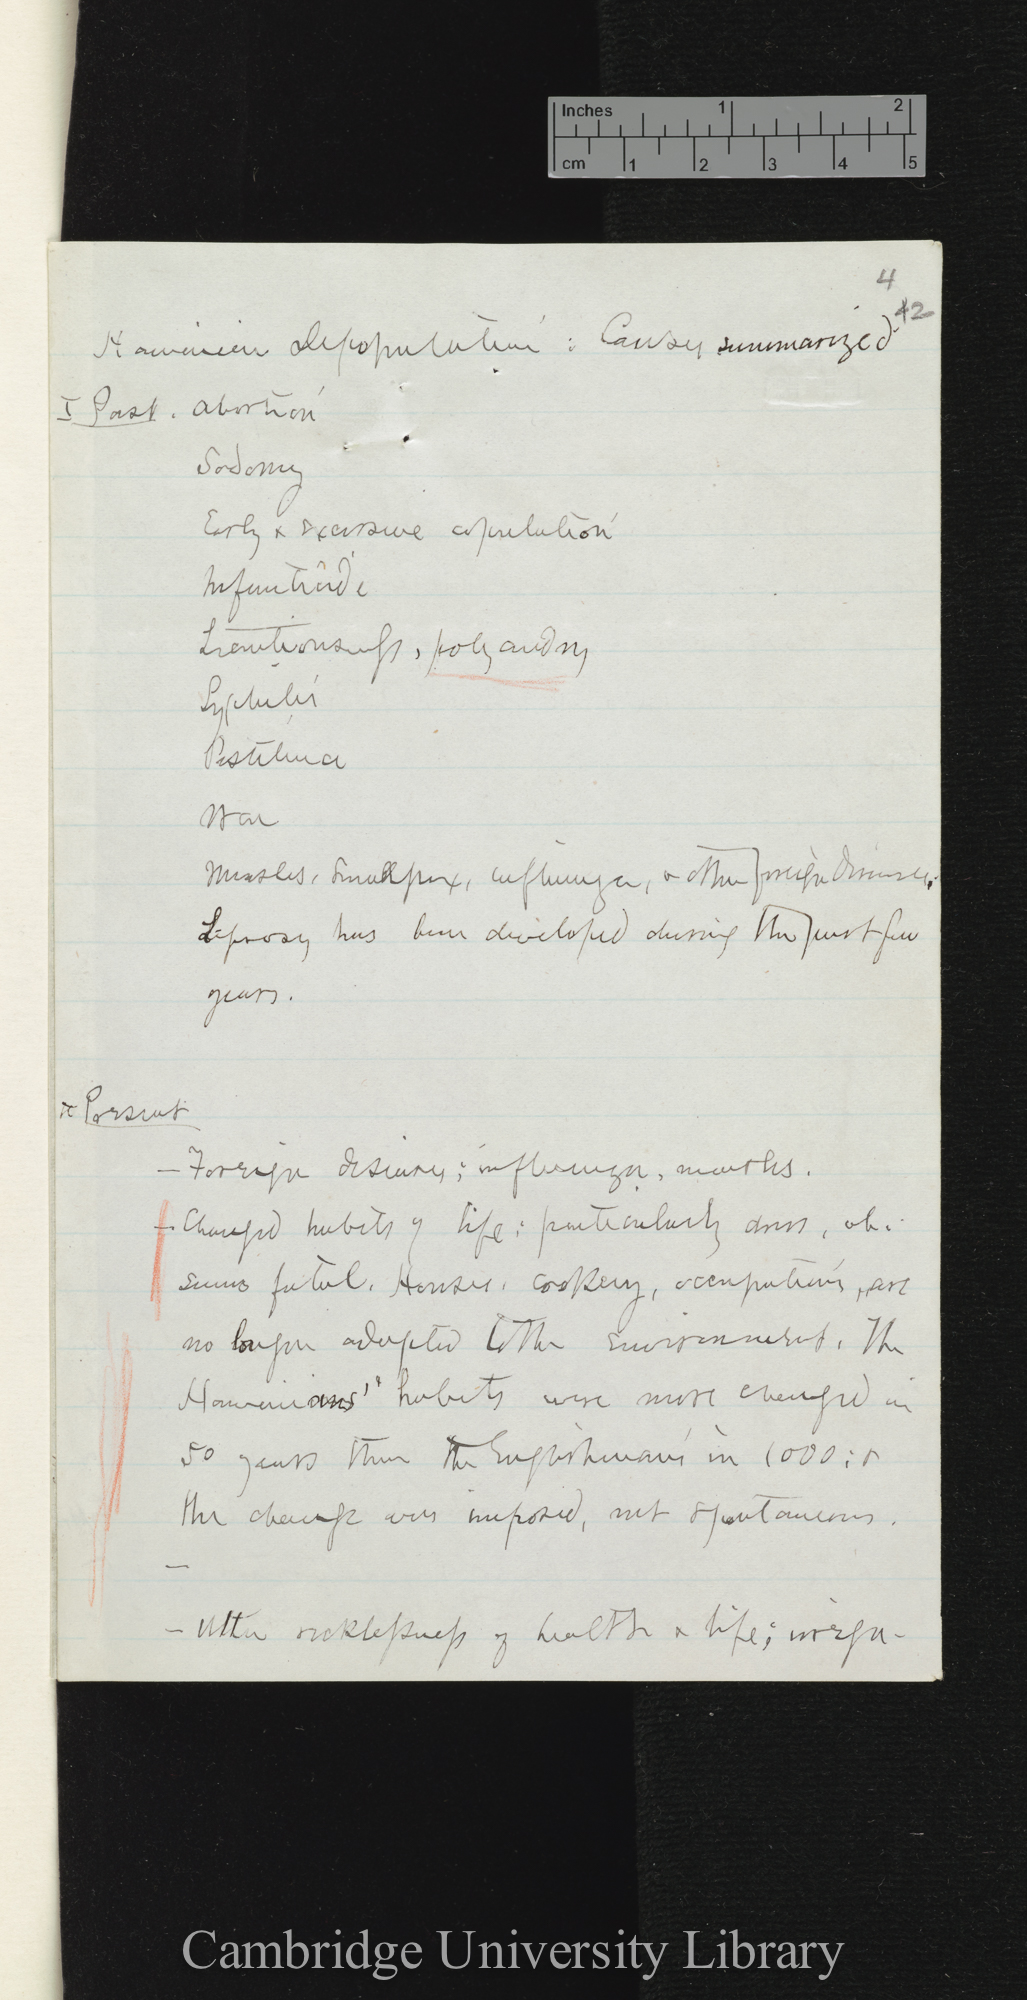 Inches 1 2
cm 1 2 3 4 5
4
42
Hawaiian Depopulation: Causes summarized
I Past. Abortion
Sodomy
Early & excessive copulation
Infanticide
Licentiousness, polyandry
Syphilis
Pestilence
War
Measles, Smallpox, influenza, & other foreign diseases.
Leprosy has been developed during the past few
years.
Present
– Foreign diseases; influenza, measles.
– Changed habits of life: particularly dress, wh.
seems fatal. Houses, cookery, occupations, are
no longer adapted to the environment. The
Hawaiians' habits were more changed in
50 years than the Englishman's in 1000; &
the change was imposed, not spontaneous.
–
– Utter recklessness of health & life; irregu-
Cambridge University Library